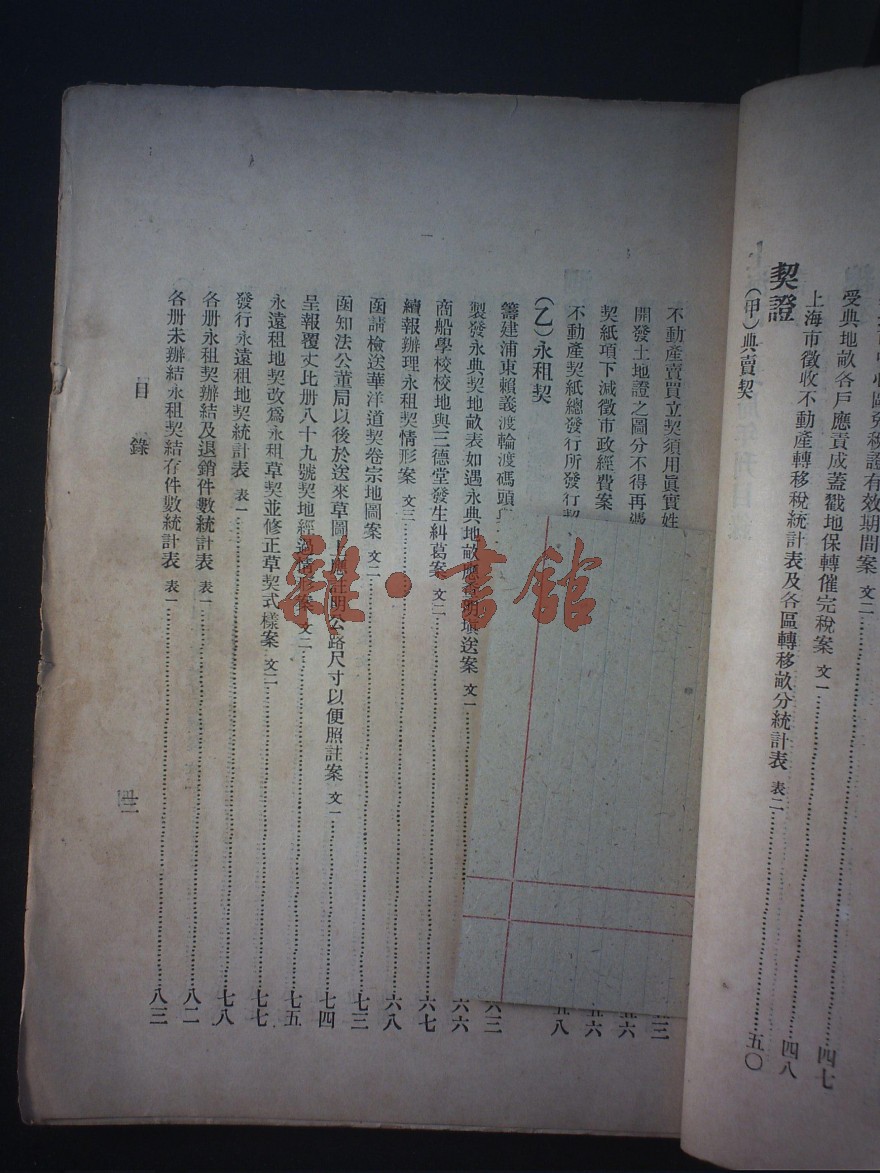 受典地畝各戶應責成蓋戳地保轉催完稅案 文一 四七
上海市徵收不動產轉移稅統計表及各區轉移畝分統計表 表二 四八
契證
(甲)典賣契 五〇
不動產賣買立契須用眞實姓
開發土地證之圖分不得再憑
契紙項下減徵市政經費案 五六
不動產契紙總發行所發行契
(乙)永租契 五八
籌建浦東賴義渡輪渡碼頭 六三
製發永典契地畝表如遇永典地畝應查明填送案 文一 六六
商船學校校地與三德堂發生糾葛案 文二 六七
續報辦理永租契情形案 文三 六八
函請檢送華洋道契卷宗地圖案 文二 七三
函知法公董局以後於送來草圖上應註明公路尺寸以便照註案 文一 七四
呈報覆丈比册八十九號契地經過情形案 文二 七五
永遠租地契改爲永租草契並修正草契式樣案 文二 七七
發行永遠租地契統計表 表一 七八
各册永租契辦結及退銷件數統計表 表一 八二
各册未辦結永租契結存件數統計表 表一 八三
目錄
雜·書館